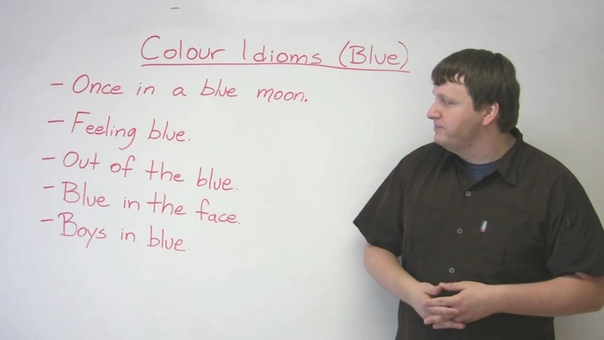 Colour Idioms (Blue)
- Once in a blue moon.
- Feeling blue.
- Out of the blue.
- Blue in the face.
- Boys in blue.